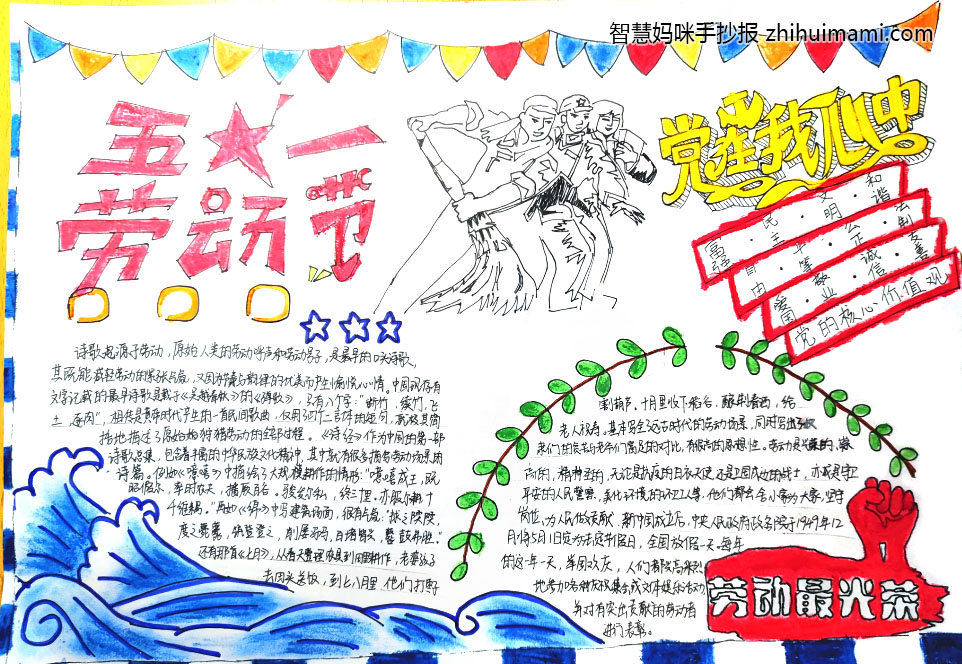 智慧妈咪手抄报 zhihuimami.com
五一
劳动节
党在我心中
富强·民主·文明·和谐
自由·平等·公正·法制
爱国·敬业·诚信·友善
党的核心价值观
诗歌起源于劳动，原始人类的劳动呼声和劳动号子，是最早的口头诗歌，
其既能减轻劳动的紧张与疲，又因节奏与韵律的优美而产生愉悦心情。中国现存有
文字记载的最早诗歌是载于《吴越春秋》的《弹歌》，只有八个字："断竹，续竹，飞
土，逐肉"，相传是黄帝时代产生的一首民间歌曲，仅用四个二言体的短句，就极其简
括地描述了原始的狩猎劳动的全部过程。《诗经》作为中国的第一部
诗歌总集，包含丰富的中华民族文化精神，其中就有很多描写劳动场景的
诗篇。例如《噫嘻》中描绘了大规模耕作的情形："噫嘻成王，既
昭假尔，率时农夫，播厥百谷。骏发尔私，终三十里，亦服尔耕，十
千维耦。"再如《绵》中写建筑场面，很有气氛："捄之陾陾，
度之薨薨，筑登登，削屡冯冯，百堵皆兴，鼛鼓弗胜。"
还有那首《七月》，从春天
去田头送饭，到七八月里，他们打
割葫芦，十月收下稻谷，酿制春酒，给
老人祝寿，基本写全远古时代的劳动场景，同时写出
高尚的，精神
平安的人民警察，美化环境的环卫工人，他们都会舍小家为大家，坚守
岗位，为人民做贡献，新中国成立后，中央人民政府政务院于1949年12
月将5月1日定为法定节假日，全国放假一天，每年
的这一天，举国欢庆，人们都
地参加各种庆祝集会或文体娱乐活动
并对有突出贡献的劳动者
进行表彰。
劳动最光荣